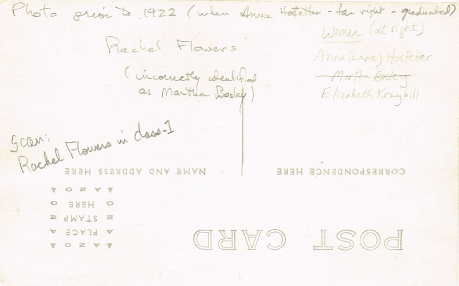 Photo prior to 1922 (when Anna Hostetter - far right - graduated)
Women (at right)
Rachel Flowers
Anna (Lane) Hostetter
(incorrectly identified
as Martha Bosley)
Martha Bosley
Elizabeth Kraybill
Scan:
Rachel Flowers in class-1
NAME AND ADDRESS HERE
CORRESPONDENCE HERE
AZO
PLACE
STAMP
HERE
AZO
POST CARD